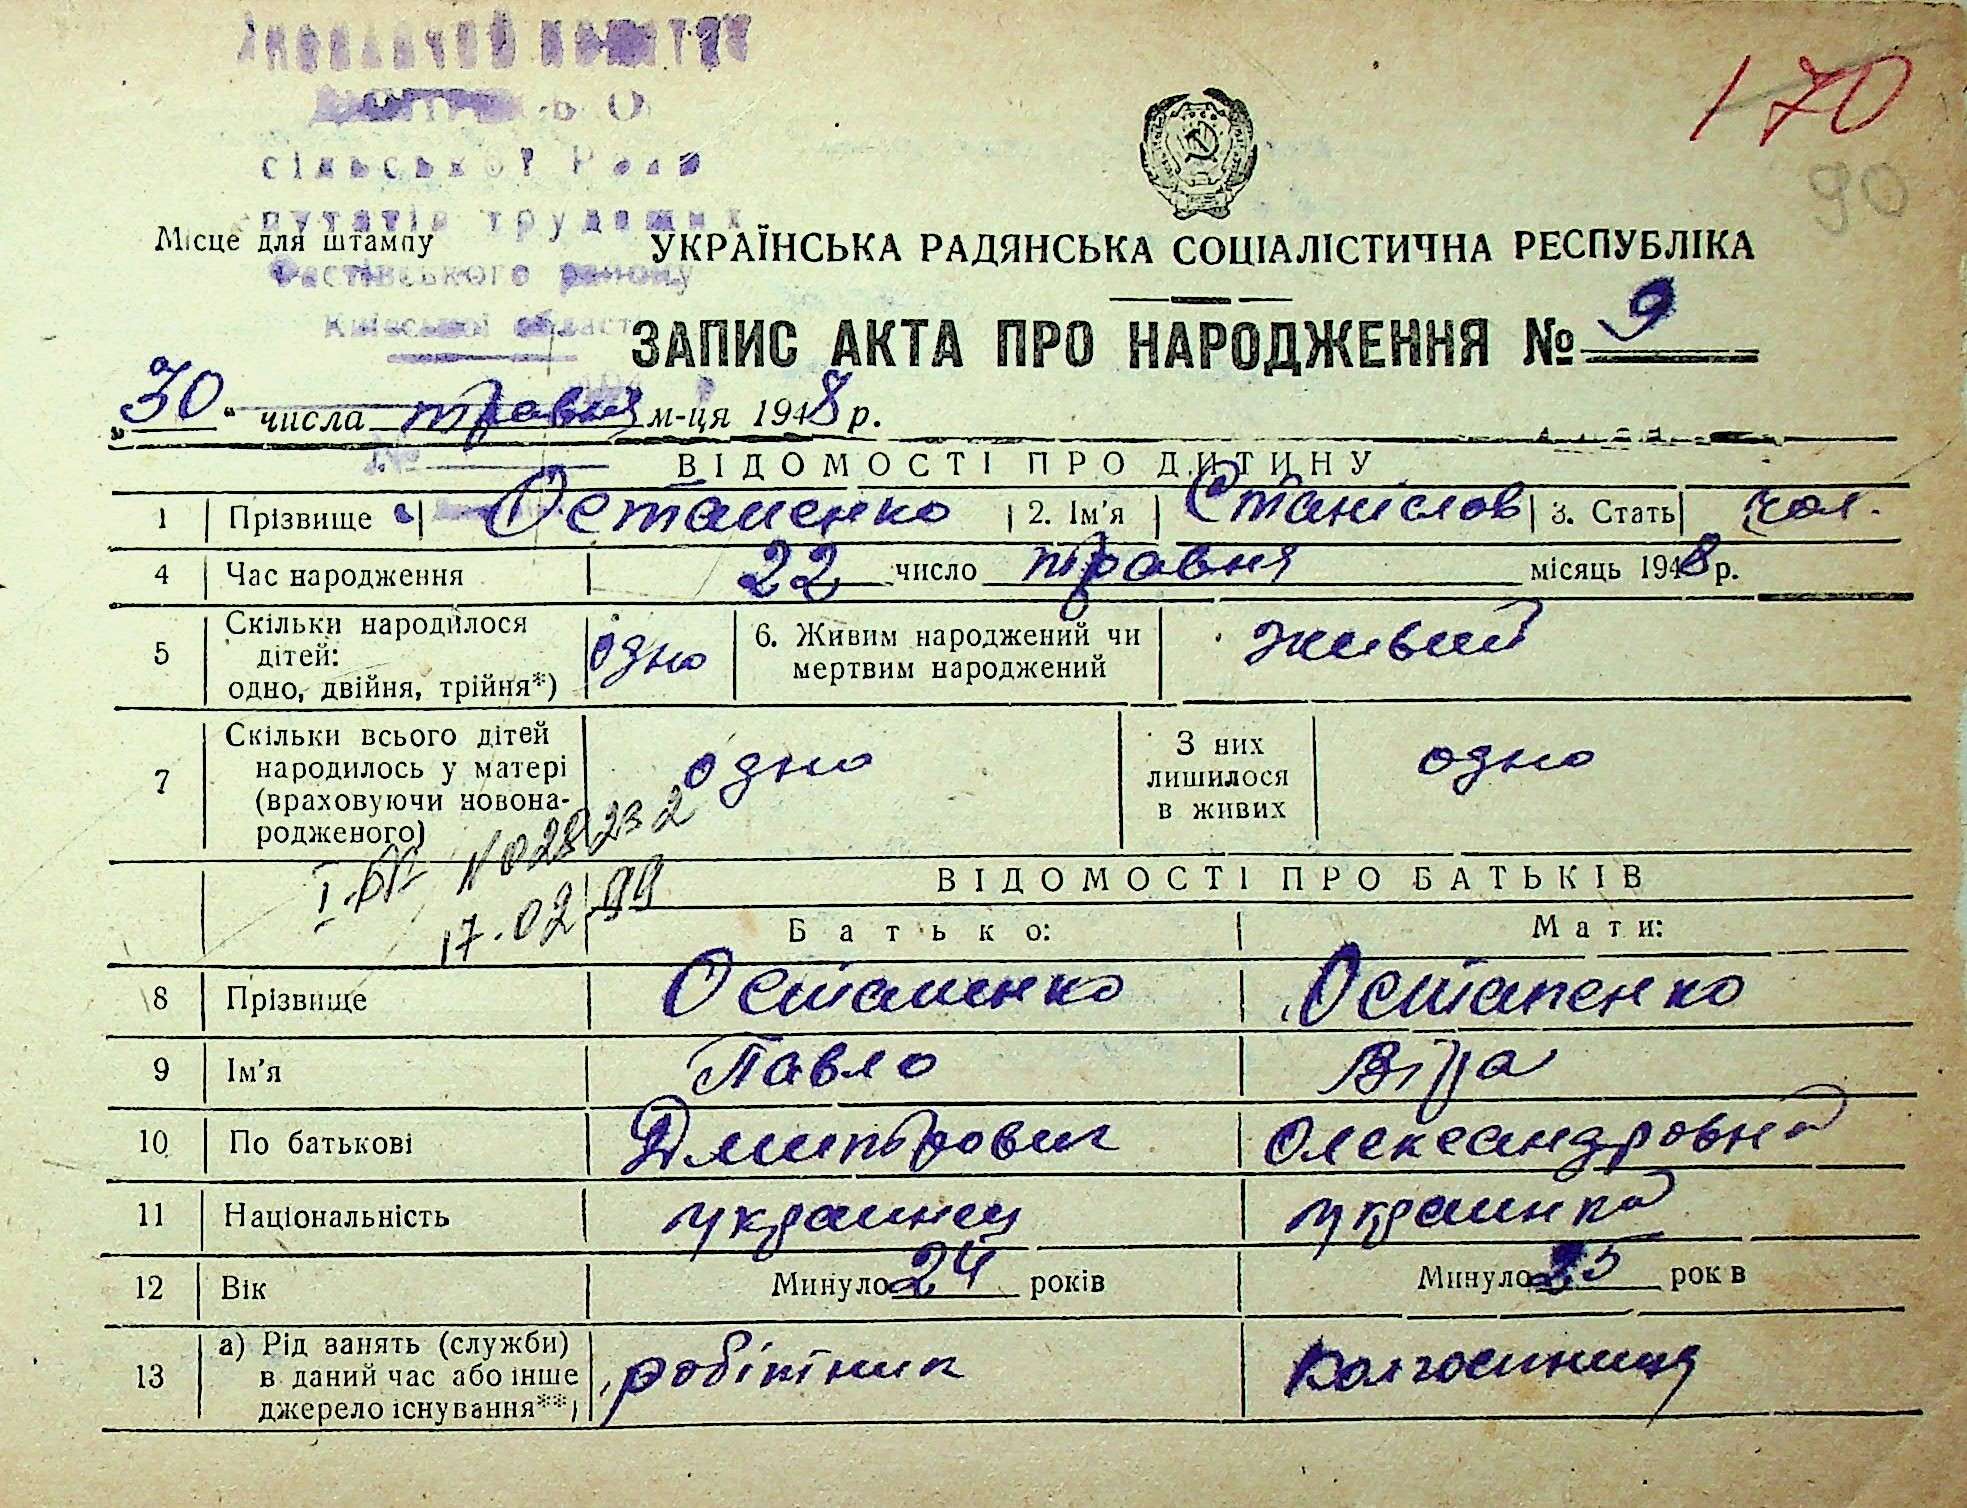 170
90
сільської Ради
путатів трудящих
Місце для штампу
Фастівського району
Київської області
УКРАЇНСЬКА РАДЯНСЬКА СОЦІАЛІСТИЧНА РЕСПУБЛІКА
ЗАПИС АКТА ПРО НАРОДЖЕННЯ № 9
„30“ числа травня м-ця 1948 р.
№
ВІДОМОСТІ ПРО ДИТИНУ
1 Прізвище Остапенко 2. Ім'я Станіслов 3. Стать чол.
4 Час народження 22 число травня місяць 1948 р.
5 Скільки народилося дітей: одно, двійня, трійня*) одно 6. Живим народжений чи мертвим народжений живий
7 Скільки всього дітей народилось у матері (враховуючи новонародженого) одно З них лишилося в живих одно
І-БК №028232
17.02.99
ВІДОМОСТІ ПРО БАТЬКІВ
Батько: Мати:
8 Прізвище Остапенко Остапенко
9 Ім'я Павло Віра
10 По батькові Дмитрович Олександровна
11 Національність украинец украинка
12 Вік Минуло 24 років Минуло 25 рок в
13 а) Рід занять (служби) в даний час або інше джерело існування**) робітник колгоспниця